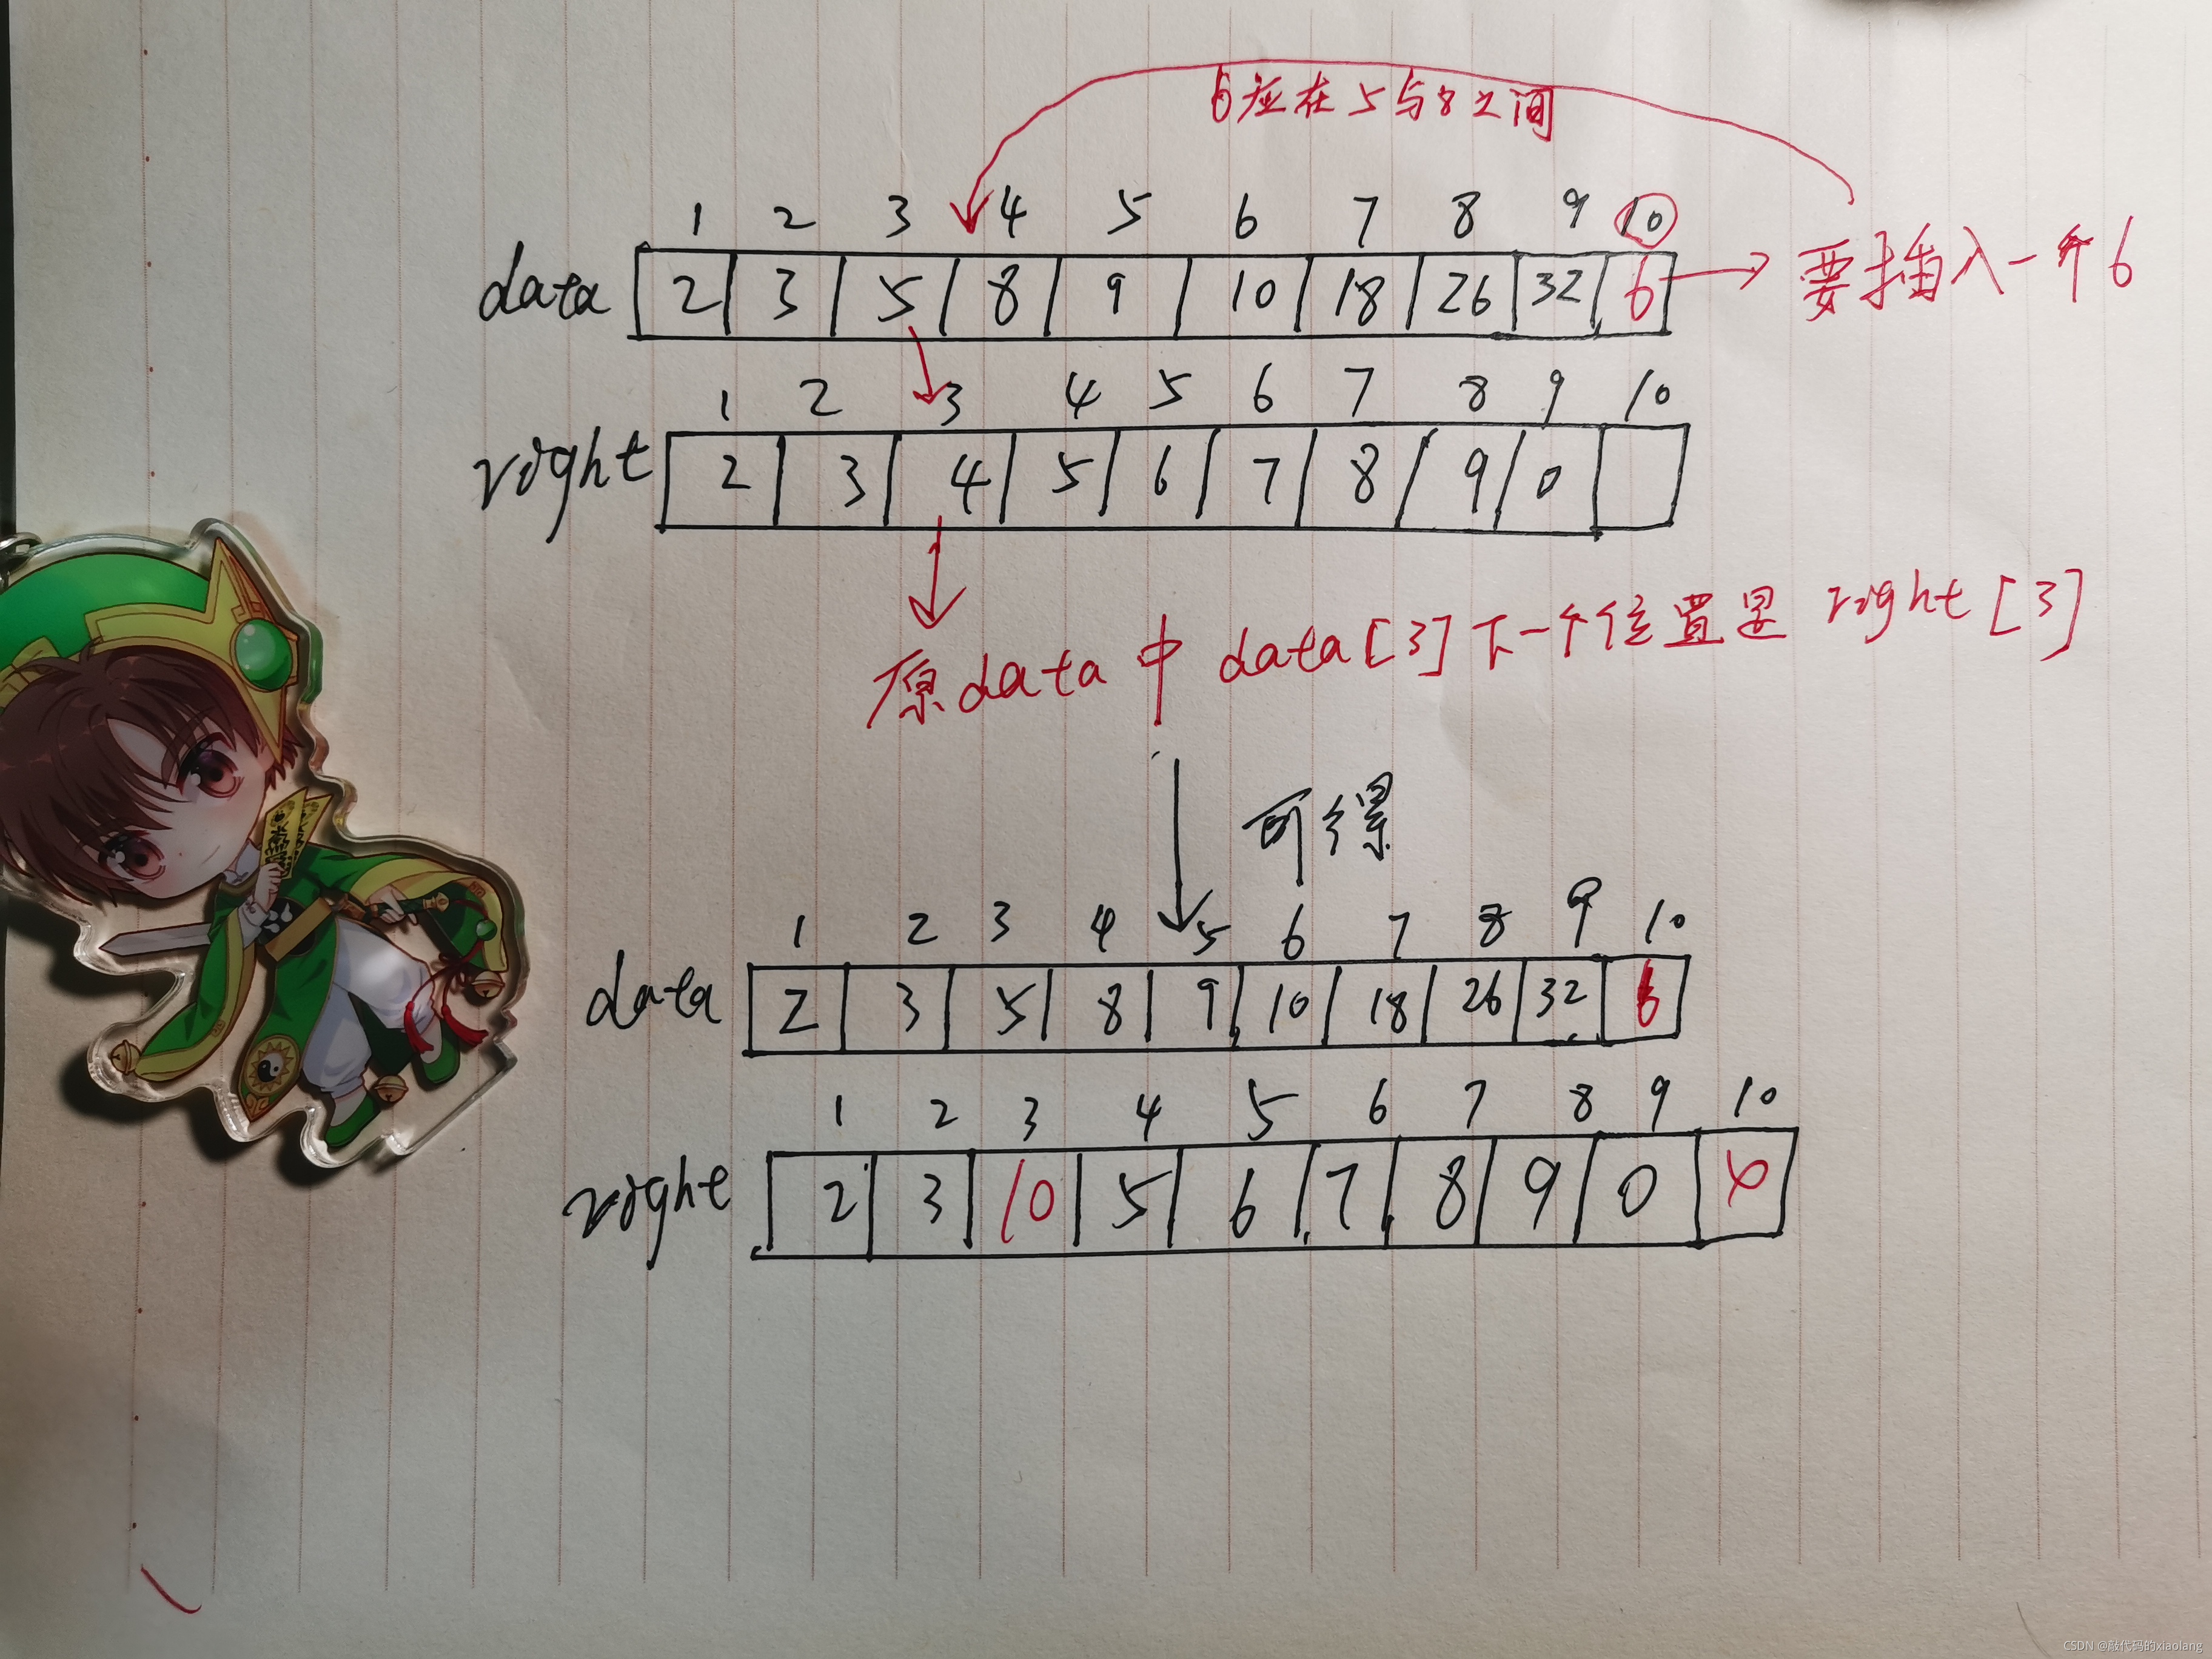 6应在5与8之间
1 2 3 4 5 6 7 8 9 10
data 2 3 5 8 9 10 18 26 32 6 要插入一个6
1 2 3 4 5 6 7 8 9 10
right 2 3 4 5 6 7 8 9 0
原data中data[3]下一个位置是right[3]
可得
1 2 3 4 5 6 7 8 9 10
data 2 3 5 8 9 10 18 26 32 6
1 2 3 4 5 6 7 8 9 10
right 2 3 10 5 6 7 8 9 0 4
CSDN @敲代码的xiaolang